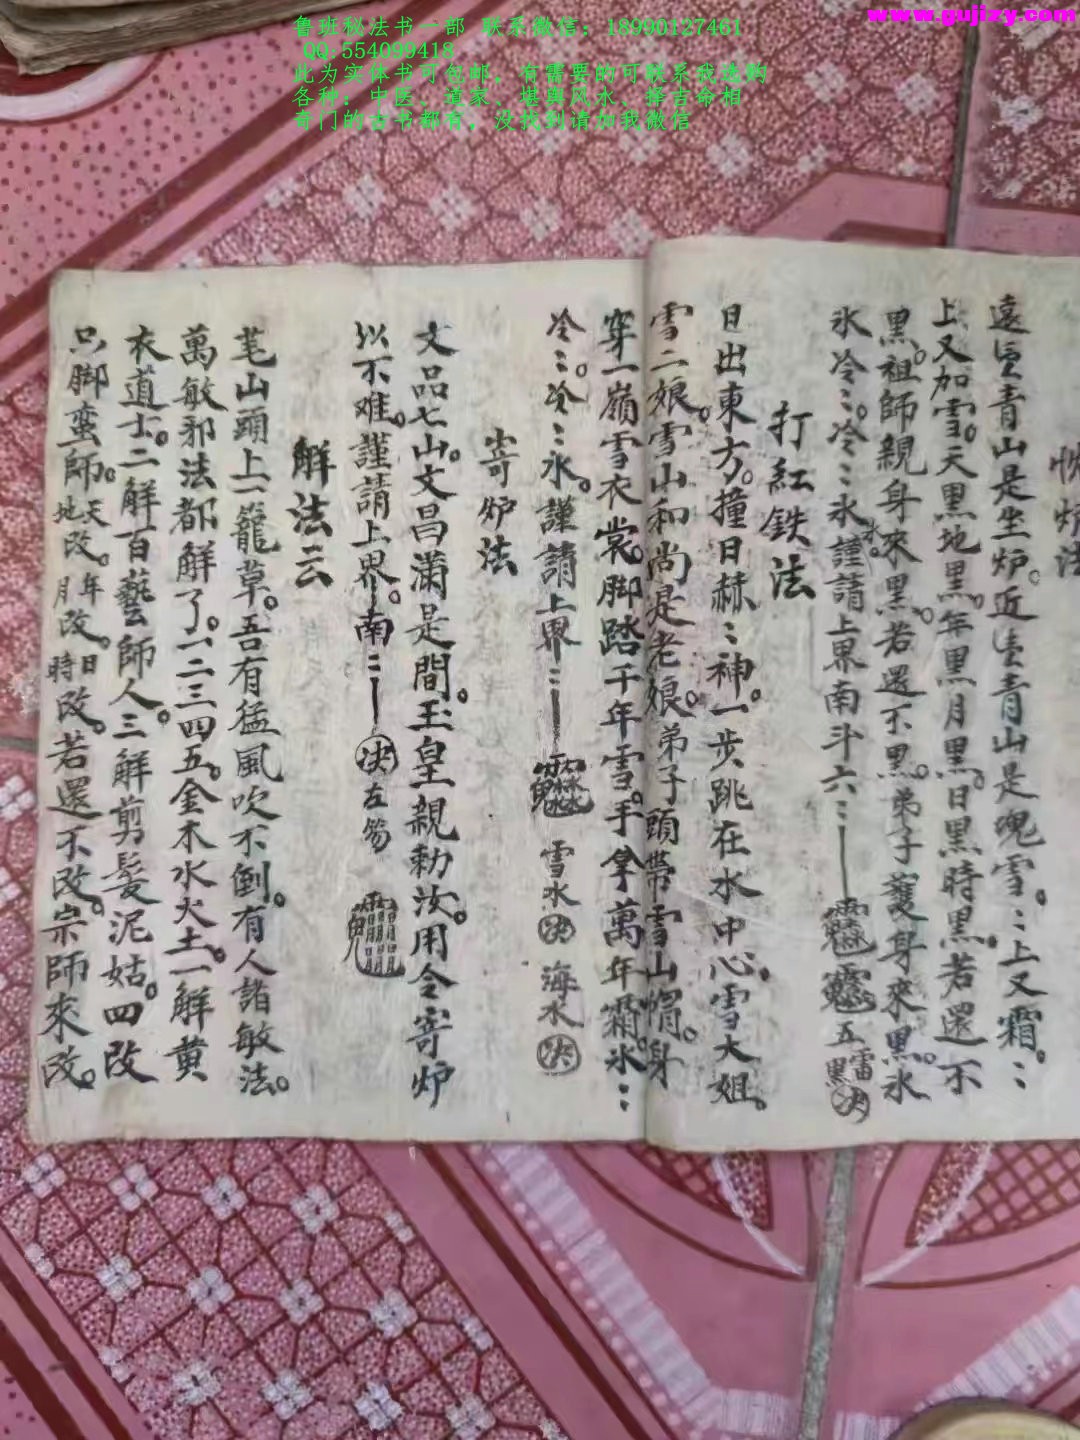 鲁班秘法书一部 联系微信；18990127461
QQ:554099418
此为实体书可包邮，有需要的可联系我选购
各种；中医、道家、堪舆风水、择吉命相
奇门的古书都有，没找到请加我微信
www.gujizy.com
炉法
遠青山是坐炉近青山是塊雪。〻上又霜。〻
上又加雪。天黑地黑。年黑月黑。日黑時黑。若還不
黑。祖師親身來黑。若還不黑。弟子護身來黑。水
氷冷〻。冷〻氷謹請上界南斗六〻 五雷黑决
打紅鉄法
日出東方。撞日赫〻神。一步跳在水中心。雪大姐。
雪二娘。雪山和尚是老娘。弟子頭帶雪山帽。身
穿一嶺雪衣裳。脚踏千年雪。手拿萬年霜。氷〻
冷〻。冷〻氷。謹請上界〻 雪水决 海水决
寄炉法
文品七山。文昌满是間。王皇親勅汝。用令寄炉
以不难。謹請上界。南〻 决左
解法云
茗山頭上一籠草。吾有猛風吹不倒。有人諸敏法。
萬敏邪法都解了。一二三四五。金木水火土。一解黄
衣道士。二解百藝師人。三解剪髮泥姑。四改
只脚蛮師。天地改。年月改。日時改。若還不改。宗師來改。